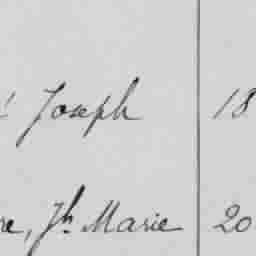 Joseph 18
re, Jh Marie 20